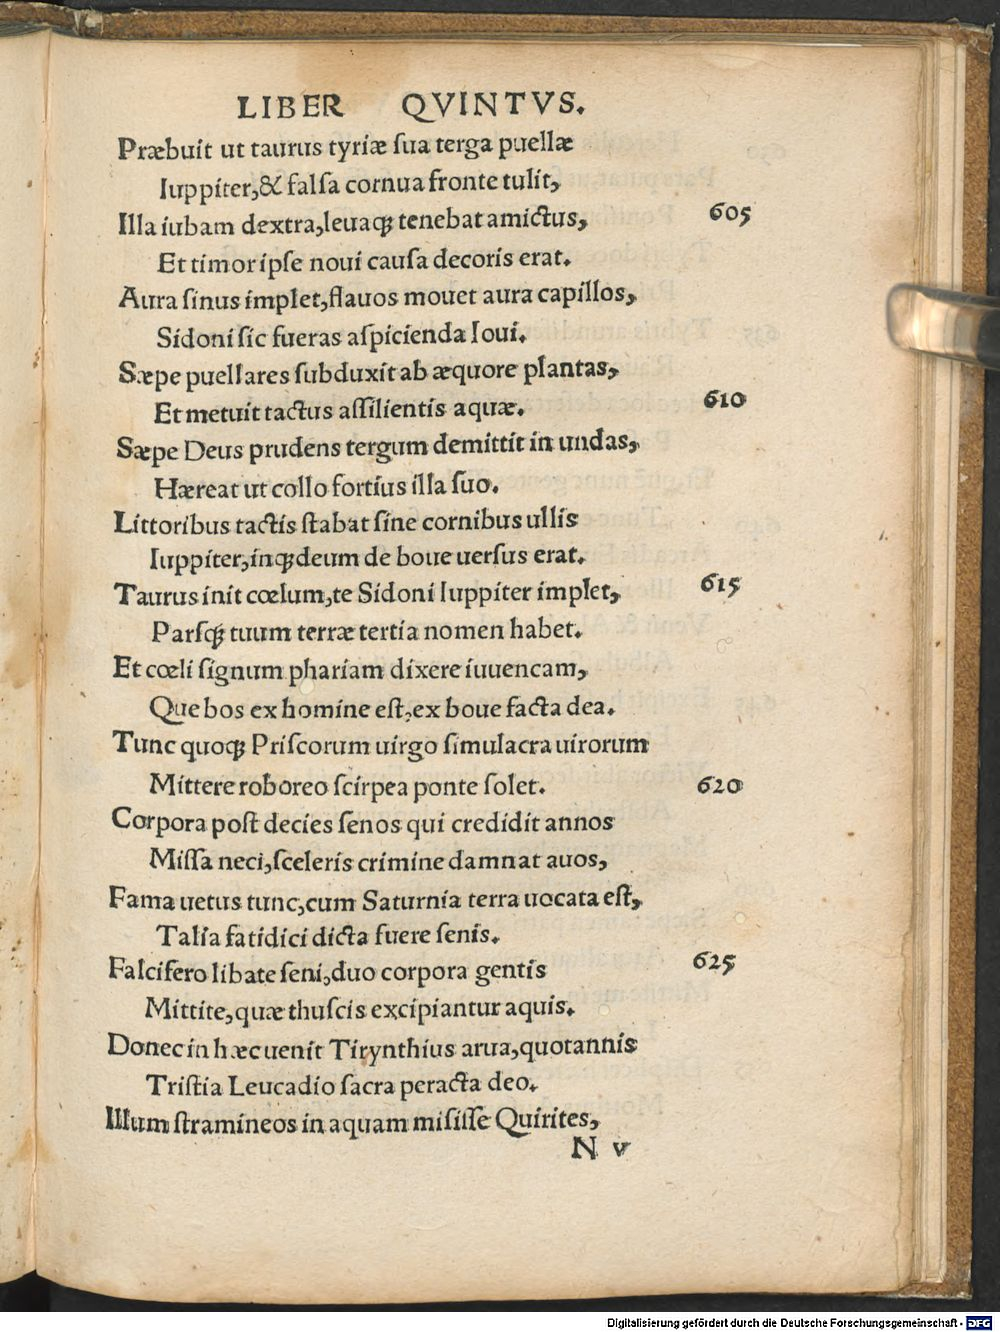 LIBER QVINTVS.
Præbuit ut taurus tyriæ ſua terga puellæ
Iuppiter,& falſa cornua fronte tulit,
Illa iubam dextra,leuaq; tenebat amictus, 605
Et timor ipſe noui cauſa decoris erat.
Aura ſinus implet,flauos mouet aura capillos,
Sidoni ſic fueras aſpicienda Ioui.
Sæpe puellares ſubduxit ab æquore plantas,
Et metuit tactus aſſilientis aquæ. 610
Sæpe Deus prudens tergum demittit in undas,
Hæreat ut collo fortius illa ſuo.
Littoribus tactis ſtabat ſine cornibus ullis
Iuppiter,inq;deum de boue uerſus erat.
Taurus init cœlum,te Sidoni Iuppiter implet, 615
Parſq; tuum terræ tertia nomen habet.
Et cœli ſignum phariam dixere iuuencam,
Que bos ex homine eſt,ex boue facta dea.
Tunc quoq; Priſcorum uirgo ſimulacra uirorum
Mittere roboreo ſcirpea ponte ſolet. 620
Corpora poſt decies ſenos qui credidit annos
Miſſa neci,ſceleris crimine damnat auos,
Fama uetus tunc,cum Saturnia terra uocata eſt,
Talia fatidici dicta fuere ſenis.
Falcifero libate ſeni,duo corpora gentis 625
Mittite,quæ thuſcis excipiantur aquis.
Donec in hæc uenit Tirynthius arua,quotannis
Triſtia Leucadio ſacra peracta deo.
Illum ſtramineos in aquam miſiſſe Quirites,
N v
Digitalisierung gefördert durch die Deutsche Forschungsgemeinschaft - DFG